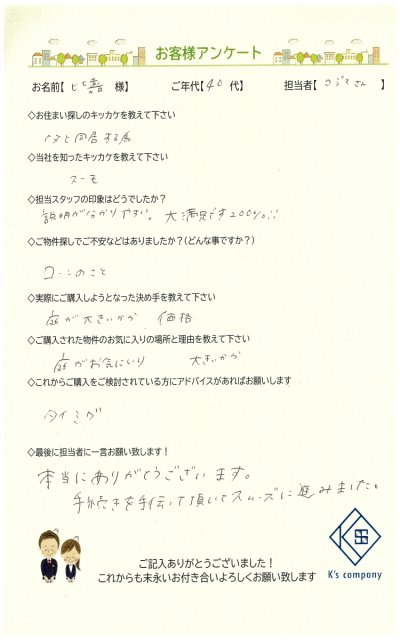 お客様アンケート
お名前【 様】 ご年代【40 代】 担当者【 さん 】
◇お住まい探しのキッカケを教えて下さい
と同居する為
◇当社を知ったキッカケを教えて下さい
スーモ
◇担当スタッフの印象はどうでしたか?
説明が分かりやすい。 大満足です200%!!
◇ご物件探しでご不安などはありましたか?(どんな事ですか?)
ローンのこと
◇実際にご購入しようとなった決め手を教えて下さい
庭が大きいから 価格
◇ご購入された物件のお気に入りの場所と理由を教えて下さい
庭がお気にいり 大きいから
◇これからご購入をご検討されている方にアドバイスがあればお願いします
タイミング
◇最後に担当者に一言お願い致します!
本当にありがとうございます。
手続きを手伝って頂いてスムーズに進みました。
ご記入ありがとうございました!
これからも末永いお付き合いよろしくお願い致します
K's company